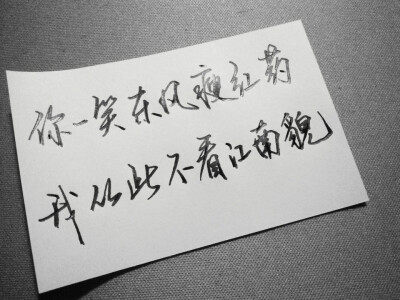 你一笑东风瘦红药
我从此不看江南貌